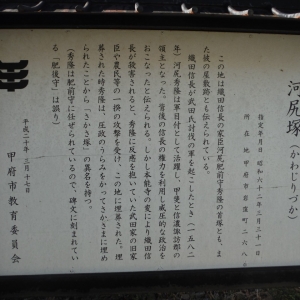 河尻塚(かわじりづか)
指定年月日 昭和六十二年三月三十一日
所在地 甲府市岩窪町二六八
この地は織田信長の家臣河尻肥前守秀隆の首塚とも、ま
た彼の屋敷跡とも伝えられている。
織田信長が武田氏討伐の軍を起こしたとき(一五八二
年)河尻秀隆は軍目付として活躍し、甲斐と信濃諏訪郡の
領主となった。背後の信長の権力を利用し威圧的な政治を
おこなったと伝えられる。しかし本能寺の変により織田信
長が殺害されると、秀隆に反感を抱いていた武田家の旧家
臣や農民等の一揆の攻撃を受け、この地に埋葬された。埋
葬された時秀隆は、圧政のうらみをかってさかさまに埋め
られたことから「さかさ塚」の異名を持つ。
(秀隆は肥前守に任ぜられているので、碑文に刻まれてい
る「肥後守」は誤り)
平成二十年三月十七日
甲府市教育委員会